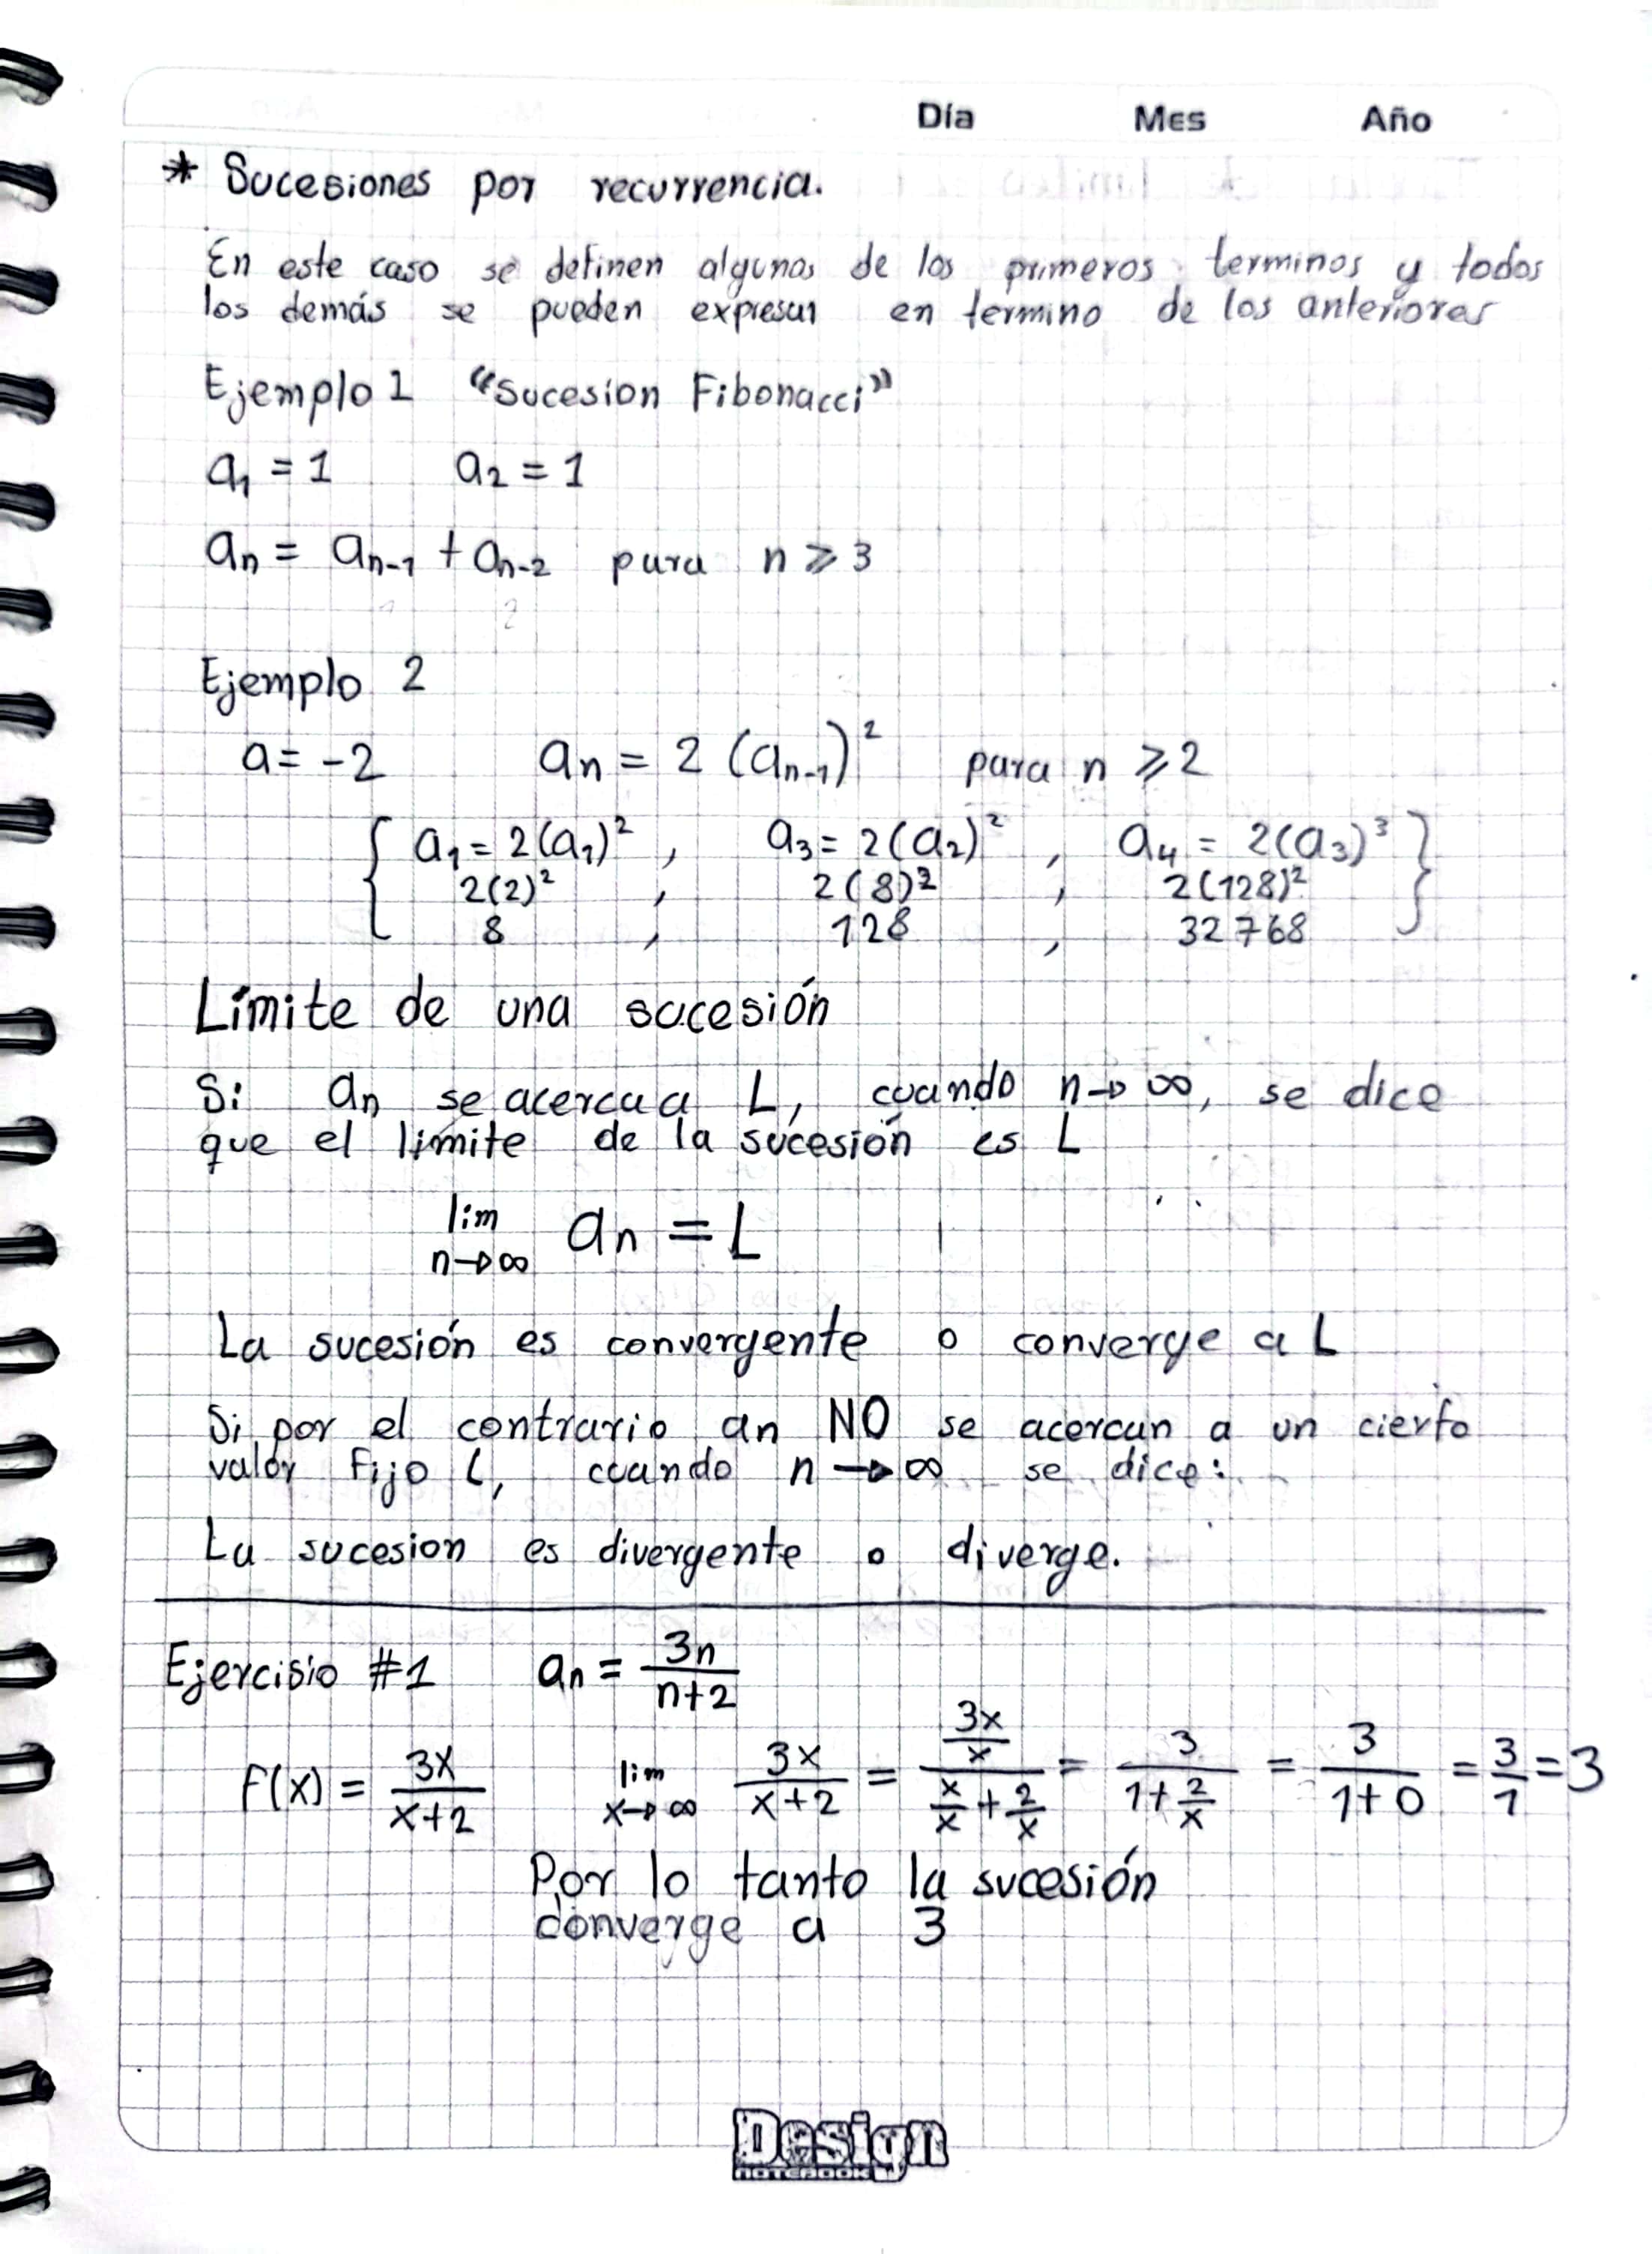 Día Mes Año
* Sucesiones por recurrencia.
En este caso se definen algunos de los primeros terminos y todos
los demás se pueden expresar en termino de los anteriores
Ejemplo 1 "Sucesion Fibonacci"
a₁ = 1 a₂ = 1
aₙ = aₙ₋₁ + aₙ₋₂ para n ⩾ 3
Ejemplo 2
a = -2 aₙ = 2 (aₙ₋₁)² para n ⩾ 2
{ a₁ = 2(a₁)² , a₃ = 2(a₂)² , a₄ = 2(a₃)³ }
2(2)² , 2(8)² , 2(128)²
8 , 128 , 32768
Límite de una sucesión
Si aₙ se acerca a L, cuando n→∞, se dice
que el limite de la sucesión es L
lim n→∞ aₙ = L
La sucesión es convergente o converge a L
Si por el contrario an NO se acercan a un cierto
valor Fijo L, cuando n→∞ se dice:
La sucesion es divergente o diverge.
Ejercisio #1 aₙ = 3n/(n+2)
F(x) = 3x/(x+2) lim x→∞ 3x/(x+2) = (3x/x)/(x/x + 2/x) = 3/(1+2/x) = 3/(1+0) = 3/1 = 3
Por lo tanto la sucesión
converge a 3
Design
NOTEBOOK